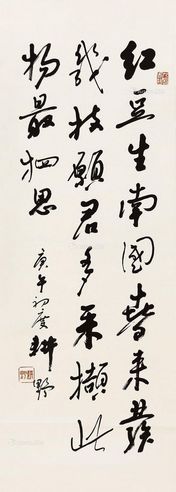 红豆生南國春来發
幾枝願君多采擷此
物最相思
庚午初夏耕野